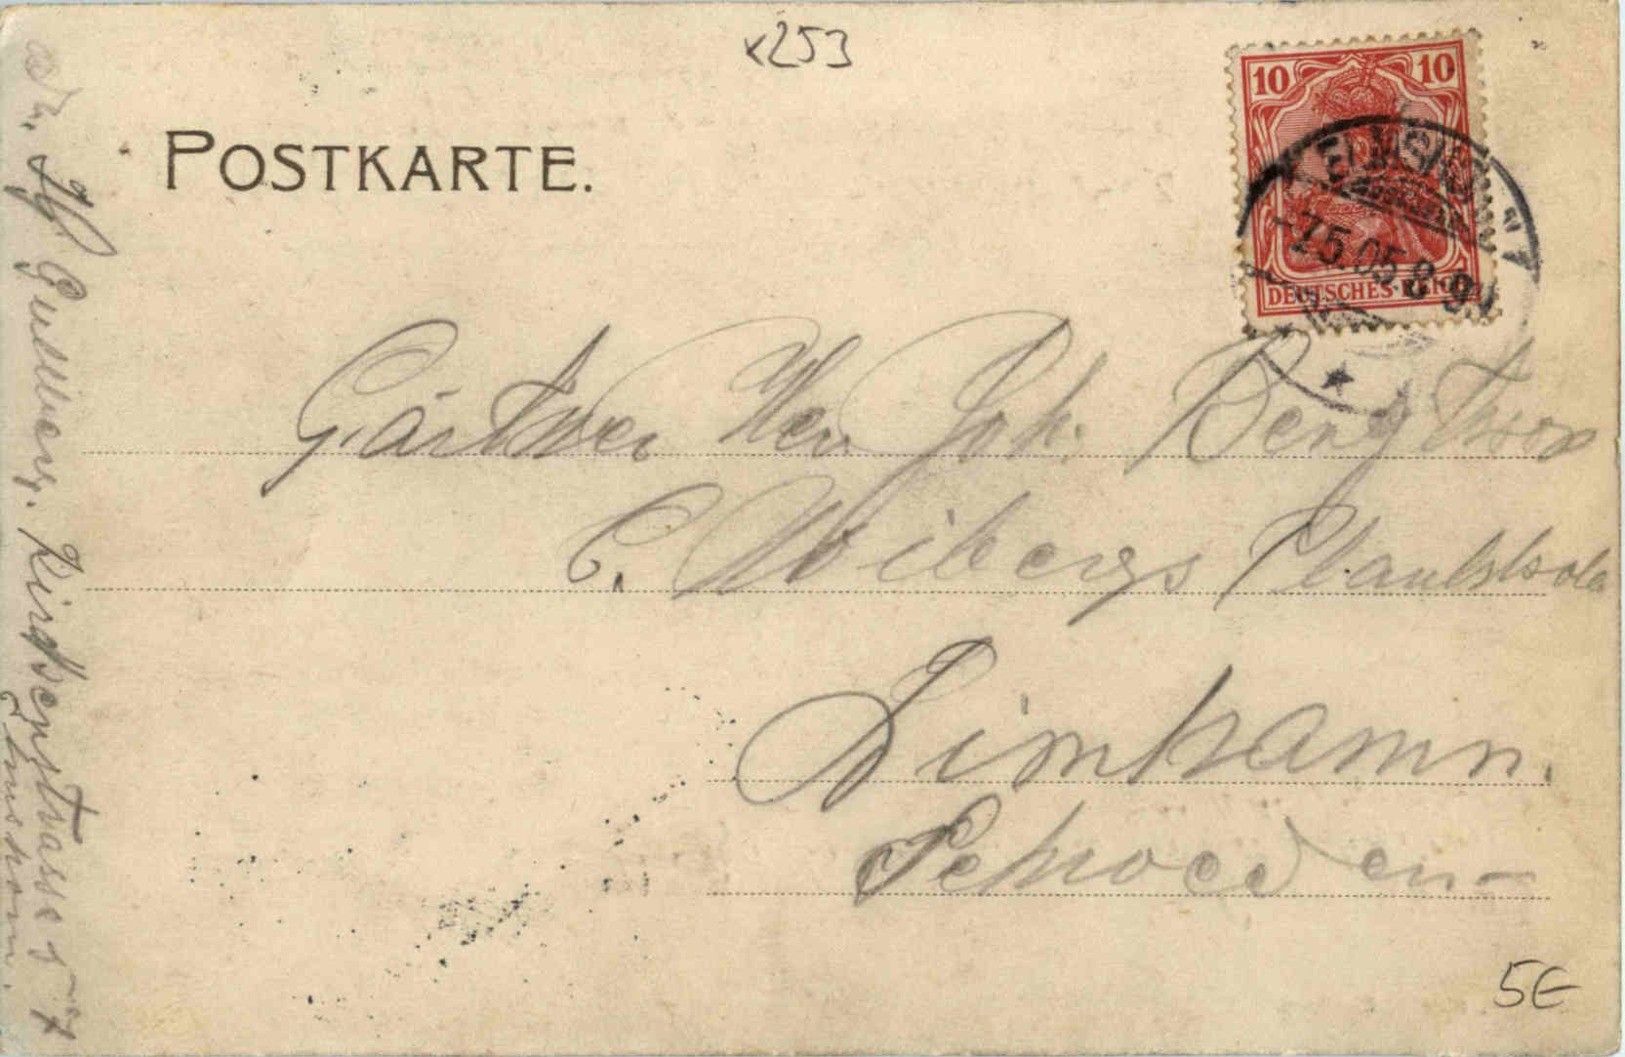 x253
POSTKARTE.
10 10
DEUTSCHES REICH
ELMSHORN
-7.5.05.8-9N
Gärtner Herr Joh. Bengtsson
C. Wibergs Plantskola
Limhamn.
Schweden-
Kirchenstrasse
Elmshorn.
5€